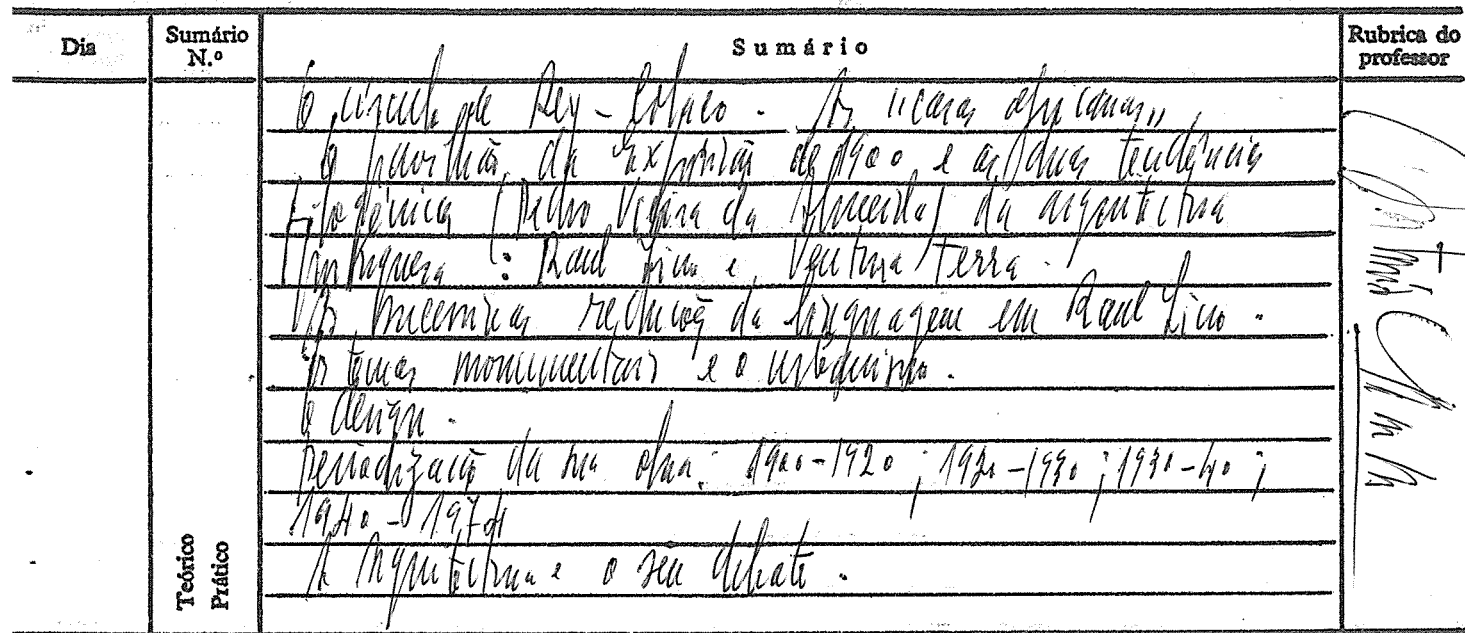 Dia
Sumário N.º
Sumário
Rubrica do professor
O círculo de Rey-Colaço. As "casas africanas"
O pavilhão da Exposição de 1900 e as duas tendências
(Pedro Vieira da Almeida) da arquitectura
portuguesa: Raul Lino e Ventura Terra.
As redução da linguagem em Raul Lino.
Os temas monumentais e o
O design.
Periodização da sua obra: 1900-1920; 1920-1930; 1930-40;
1940-1974
A Arquitectura e o seu debate.
Teórico
Prático